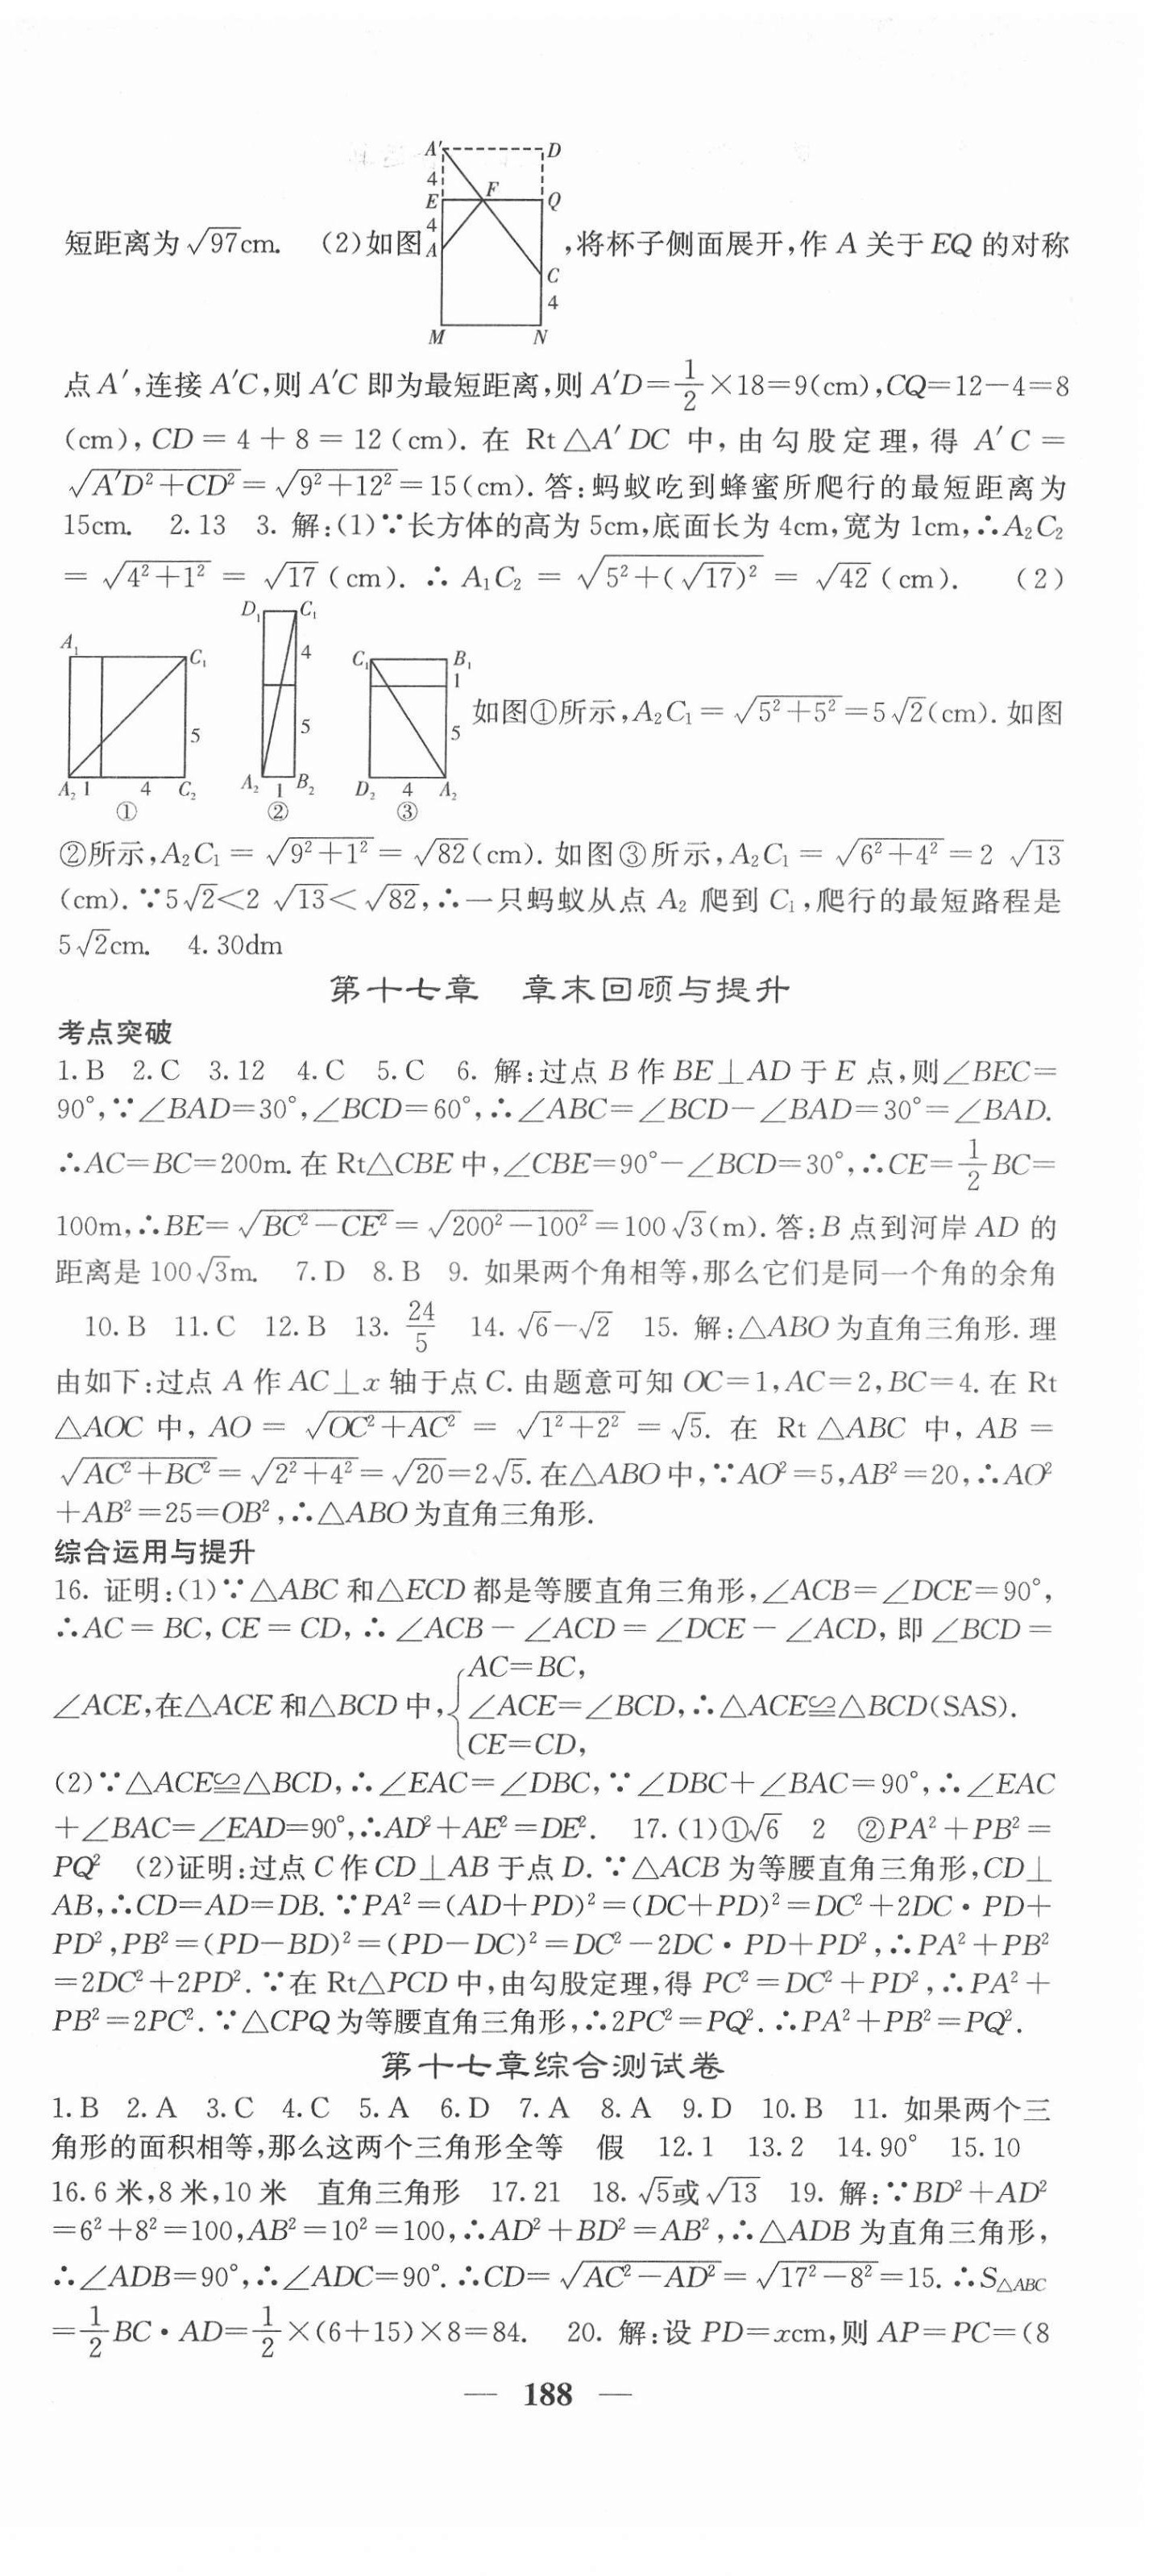 A′ D
4
E F Q
4
短距离为√97cm. (2)如图 A ,将杯子侧面展开,作 A 关于 EQ 的对称
C
4
M N
点 A′,连接 A′C,则 A′C 即为最短距离,则 A′D=1/2×18=9(cm),CQ=12−4=8
(cm),CD=4+8=12(cm).在 Rt△A′DC 中,由勾股定理,得 A′C=
√(A′D²+CD²)=√(9²+12²)=15(cm).答:蚂蚁吃到蜂蜜所爬行的最短距离为
15cm. 2.13 3. 解:(1)∵长方体的高为 5cm,底面长为 4cm,宽为 1cm,∴A₂C₂
=√(4²+1²)=√17(cm).∴A₁C₂=√(5²+(√17)²)=√42(cm). (2)
D₁ C₁
A₁ C₁ 4 C₁ B₁
1
5 5 5 如图①所示,A₂C₁=√(5²+5²)=5√2(cm).如图
A₂ 1 4 C₂ A₂ 1 B₂ D₂ 4 A₂
① ② ③
②所示,A₂C₁=√(9²+1²)=√82(cm).如图③所示,A₂C₁=√(6²+4²)=2√13
(cm).∵5√2<2√13<√82,∴一只蚂蚁从点 A₂ 爬到 C₁,爬行的最短路程是
5√2cm. 4.30dm
第十七章 章末回顾与提升
考点突破
1.B 2.C 3.12 4.C 5.C 6. 解:过点 B 作 BE⊥AD 于 E 点,则∠BEC=
90°,∵∠BAD=30°,∠BCD=60°,∴∠ABC=∠BCD−∠BAD=30°=∠BAD.
∴AC=BC=200m.在 Rt△CBE 中,∠CBE=90°−∠BCD=30°,∴CE=1/2BC=
100m,∴BE=√(BC²−CE²)=√(200²−100²)=100√3(m).答:B 点到河岸 AD 的
距离是 100√3m. 7.D 8.B 9. 如果两个角相等,那么它们是同一个角的余角
10.B 11.C 12.B 13. 24/5 14.√6−√2 15. 解:△ABO 为直角三角形.理
由如下:过点 A 作 AC⊥x 轴于点 C.由题意可知 OC=1,AC=2,BC=4.在 Rt
△AOC 中,AO=√(OC²+AC²)=√(1²+2²)=√5.在 Rt△ABC 中,AB=
√(AC²+BC²)=√(2²+4²)=√20=2√5.在△ABO 中,∵AO²=5,AB²=20,∴AO²
+AB²=25=OB²,∴△ABO 为直角三角形.
综合运用与提升
16. 证明:(1)∵△ABC 和△ECD 都是等腰直角三角形,∠ACB=∠DCE=90°,
∴AC=BC,CE=CD,∴∠ACB−∠ACD=∠DCE−∠ACD,即∠BCD=
AC=BC,
∠ACE,在△ACE 和△BCD 中,{∠ACE=∠BCD,∴△ACE≌△BCD(SAS).
CE=CD,
(2)∵△ACE≌△BCD,∴∠EAC=∠DBC,∵∠DBC+∠BAC=90°,∴∠EAC
+∠BAC=∠EAD=90°,∴AD²+AE²=DE². 17.(1)①√6 2 ②PA²+PB²=
PQ² (2)证明:过点 C 作 CD⊥AB 于点 D.∵△ACB 为等腰直角三角形,CD⊥
AB,∴CD=AD=DB.∵PA²=(AD+PD)²=(DC+PD)²=DC²+2DC·PD+
PD²,PB²=(PD−BD)²=(PD−DC)²=DC²−2DC·PD+PD²,∴PA²+PB²
=2DC²+2PD².∵在 Rt△PCD 中,由勾股定理,得 PC²=DC²+PD²,∴PA²+
PB²=2PC².∵△CPQ 为等腰直角三角形,∴2PC²=PQ².∴PA²+PB²=PQ².
第十七章综合测试卷
1.B 2.A 3.C 4.C 5.A 6.D 7.A 8.A 9.D 10.B 11. 如果两个三
角形的面积相等,那么这两个三角形全等 假 12.1 13.2 14.90° 15.10
16.6 米,8 米,10 米 直角三角形 17.21 18.√5或√13 19. 解:∵BD²+AD²
=6²+8²=100,AB²=10²=100,∴AD²+BD²=AB²,∴△ADB 为直角三角形,
∴∠ADB=90°,∴∠ADC=90°.∴CD=√(AC²−AD²)=√(17²−8²)=15.∴S△ABC
=1/2BC·AD=1/2×(6+15)×8=84. 20. 解:设 PD=xcm,则 AP=PC=(8
— 188 —